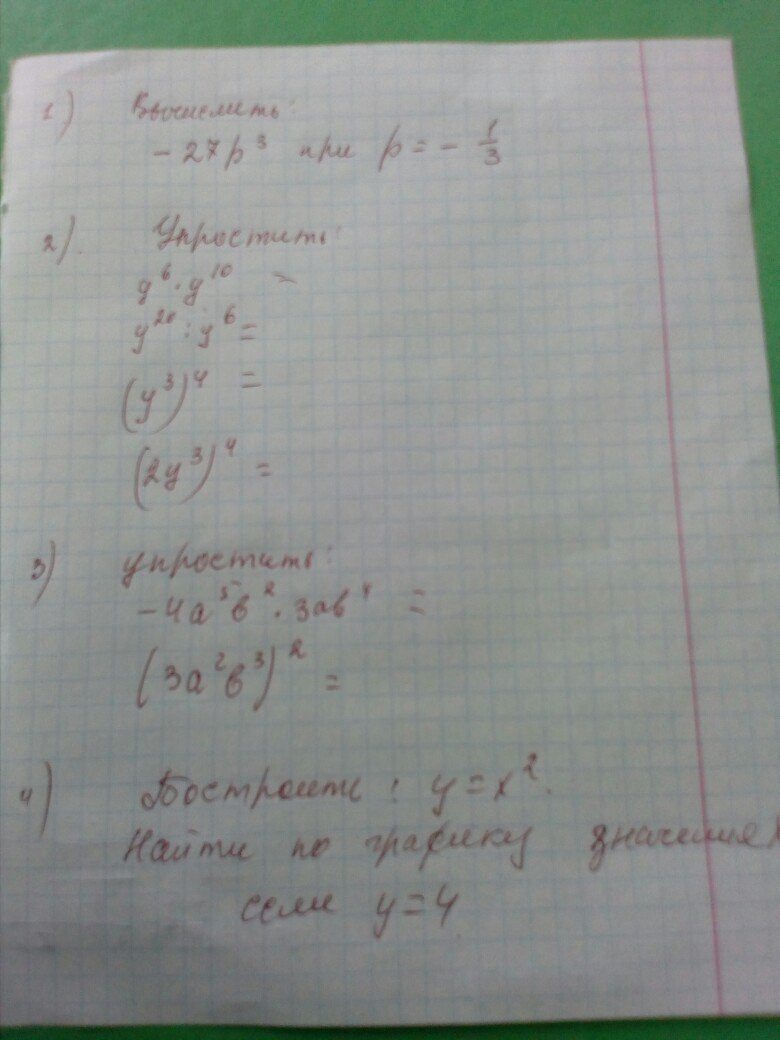 1) Вычислить:
- 27p³ при p = - 1/3
2). Упростить:
y⁶ · y¹⁰ =
y²⁰ : y⁶ =
(y³)⁴ =
(2y³)⁴ =
3) упростить:
-4a⁵b² · 3ab⁴ =
(3a²b³)² =
4) Построить : y = x².
Найти по графику значения x
если y = 4